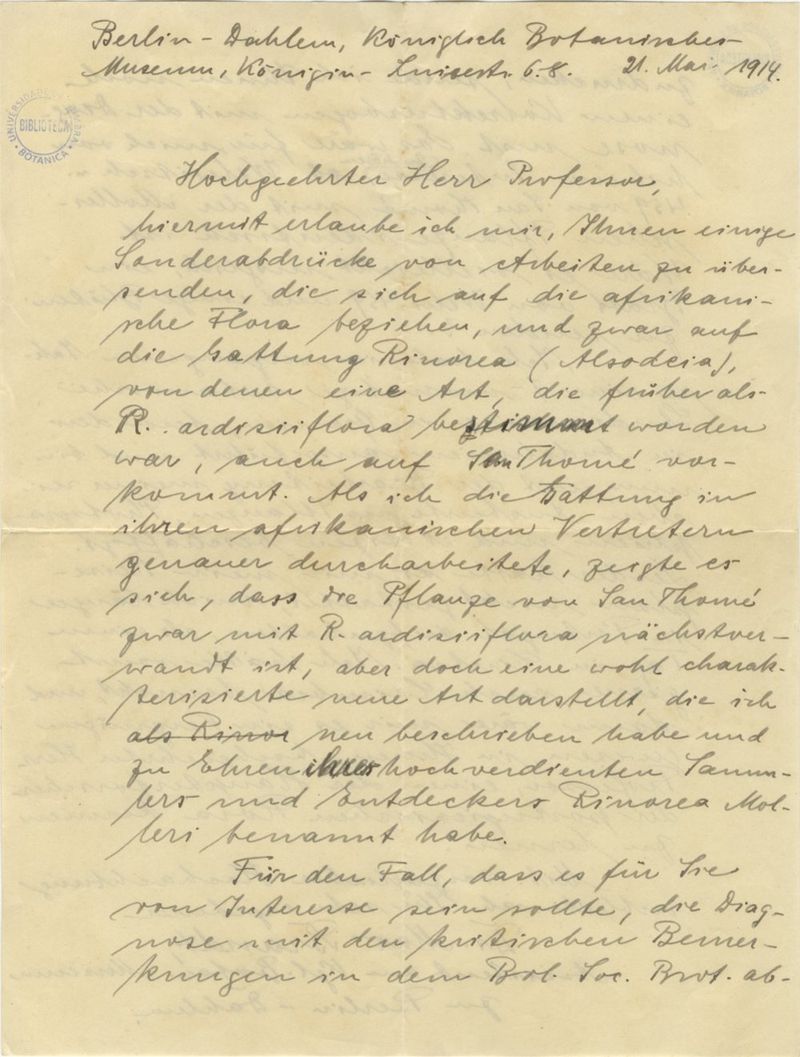 Berlin-Dahlem, Königlich Botanisches
Museum, Königin-Luisestr. 6.8. 21. Mai 1914.
UNIVERSIDADE
BIBLIOTECA
BOTANICA
Hochgeehrter Herr Professor,
hiermit erlaube ich mir, Ihnen einige
Sonderabdrücke von Arbeiten zu über-
senden, die sich auf die afrikani-
sche Flora beziehen, und zwar auf
die Gattung Rinorea (Alsodeia),
von denen eine Art, die früher als
R. ardisiiflora bestimmt worden
war, auch auf San Thomé vor-
kommt. Als ich die Gattung in
ihren afrikanischen Vertretern
genauer durcharbeitete, zeigte es
sich, dass die Pflanze von San Thomé
zwar mit R. ardisiiflora nächstver-
wandt ist, aber doch eine wohl charak-
terisierte neue Art darstellt, die ich
als Rinor neu beschrieben habe und
zu Ehren ihres hochverdienten Samm-
lers und Entdeckers Rinorea Mol-
leri benannt habe.
Für den Fall, dass es für Sie
von Interesse sein sollte, die Diag-
nose mit den kritischen Bemer-
kungen in dem Bol. Soc. Brot. ab-